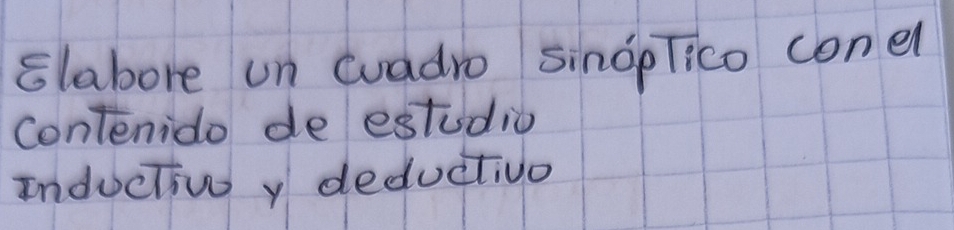 Elabore un cuadro sinóptico con el
contenido de estudio
Inductivo y deductivo